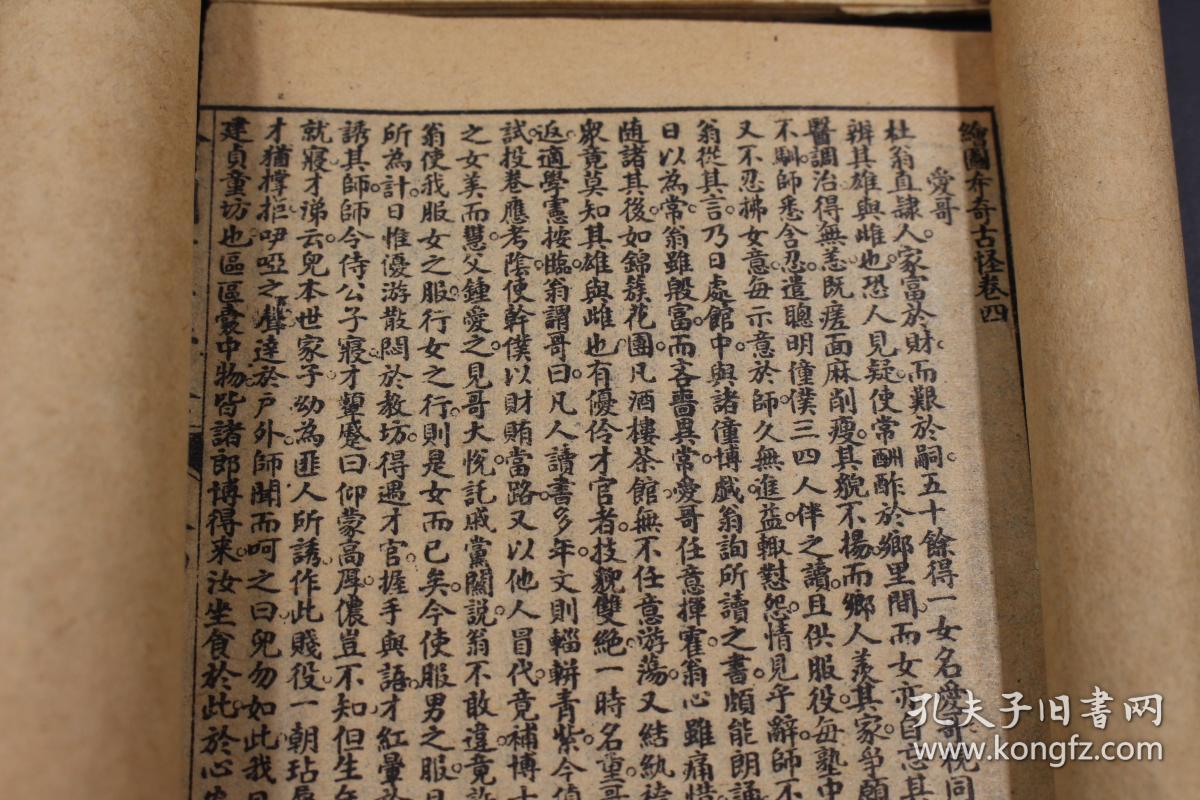 繪圖希奇古怪卷四
愛哥
杜翁直隸人家富於財而艱於嗣五十餘得一女名愛哥視同
辨其雄與雌也恐人見疑使常酬酢於鄉里間而女亦自忘其
醫調治得無恙既瘥面麻削瘦其貌不揚而鄉人羨其家爭願
不馴師悉含忍遣聰明僮僕三四人伴之讀且供服役每塾中
又不忍拂女意每示意於師久無進益輒懟怨情見乎辭師不
翁從其言乃日處館中與諸僮博戲翁詢所讀之書頗能朗誦
日以為常翁雖殷富而吝嗇異常愛哥任意揮霍翁心雖痛惜
随諸其後如錦簇花團凡酒樓茶館無不任意游蕩又結紈袴
眾竟莫知其雄與雌也有優伶才官者技貌雙絶一時名重哥
返適學憲按臨翁謂哥曰凡人讀書多年文則輜軿青紫今值
試投卷應考陰使幹僕以財賄當路又以他人冒代竟補博士
之女美而慧父鍾愛之見哥大悅託戚黨關説翁不敢違竟許
翁使我服女之服行女之行則是女而已矣今使服男之服
所為計日惟優游散悶於教坊得遇才官握手與語才紅暈
誘其師師令侍公子寢才顰蹙曰仰蒙高厚儂豈不知但生年
就寢才涕云兒本世家子幼為匪人所誘作此賤役一朝玷辱
才猶撐拒咿啞之聲達於戶外師聞而呵之曰兒勿如此我
建貞童坊也區區橐中物皆諸郎博得來汝坐食於此於心
孔夫子旧书网
www.kongfz.com